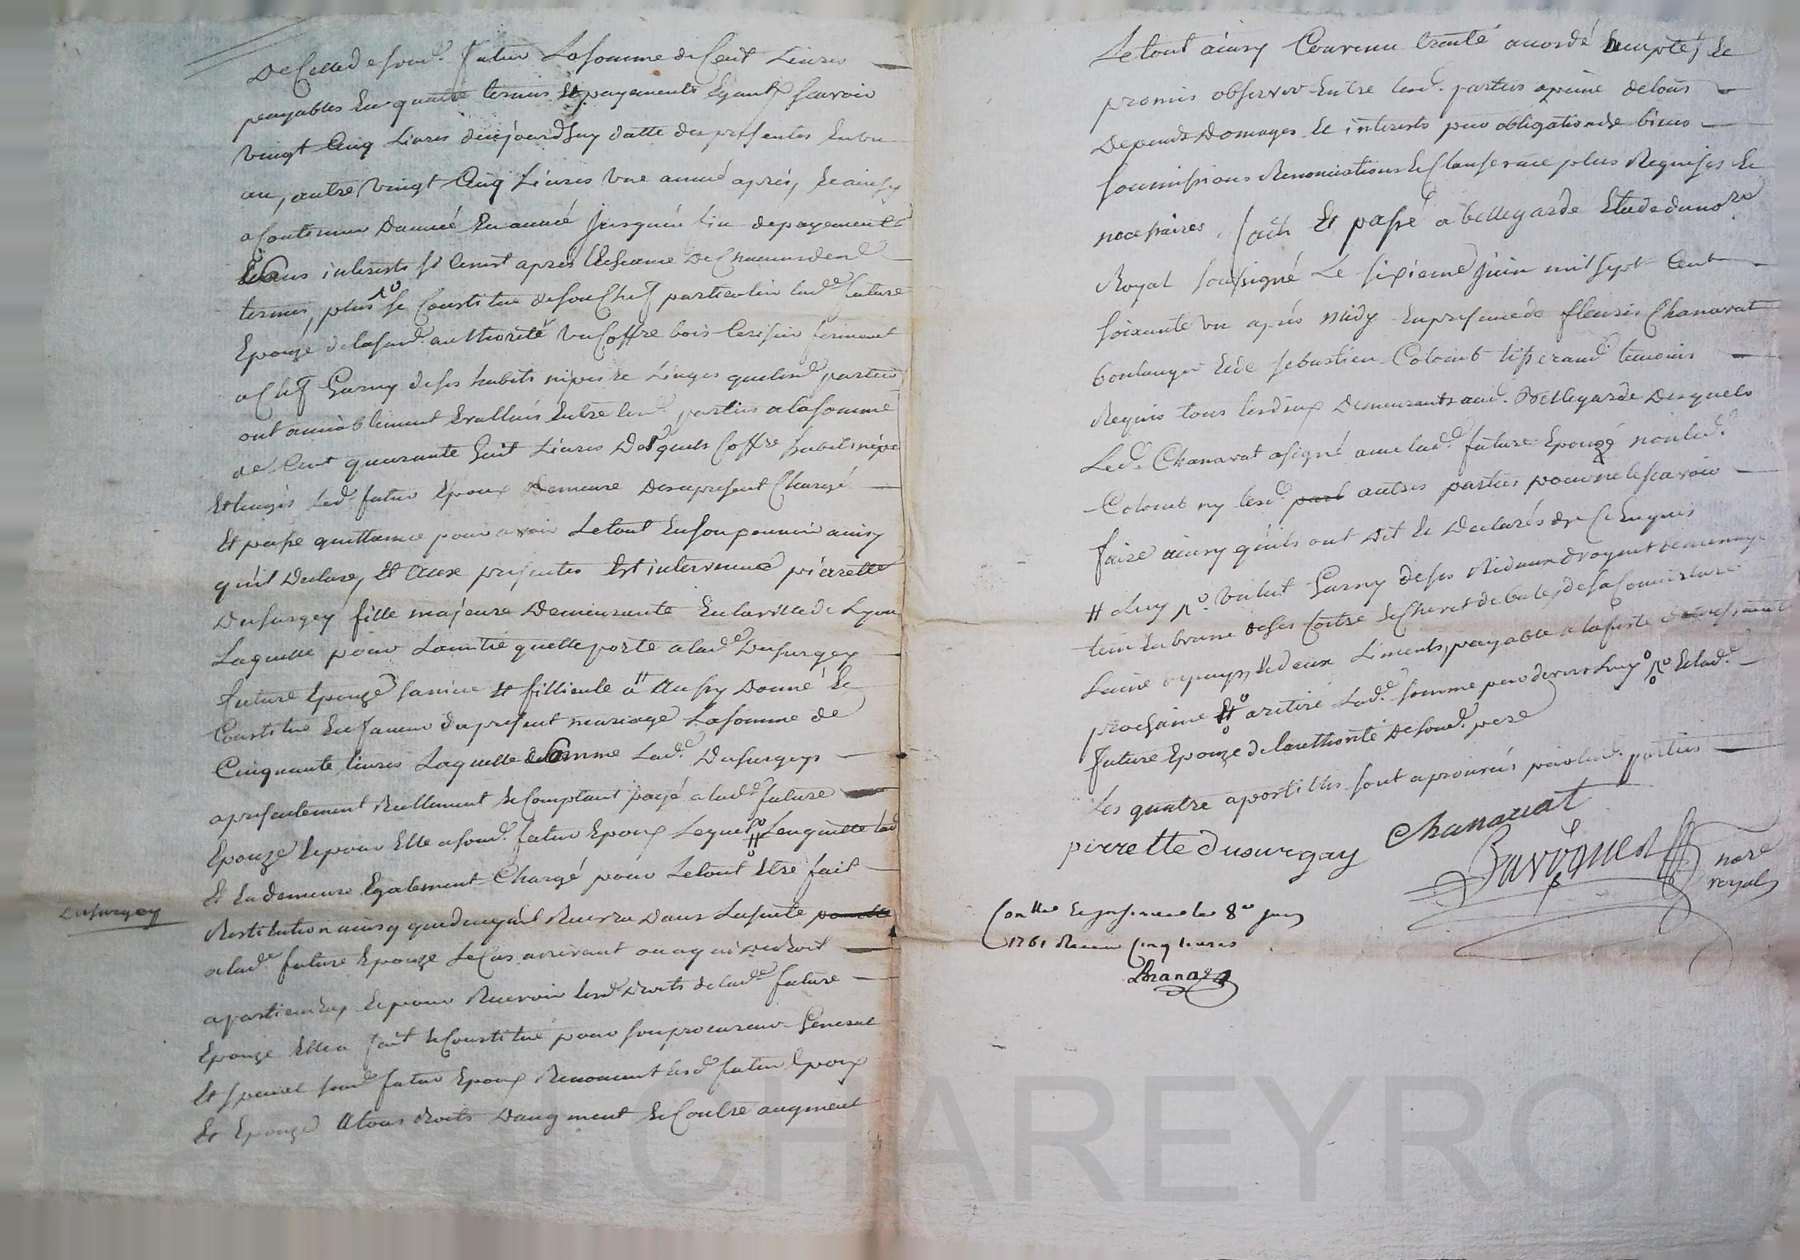 De celle de sond. futur La somme de Cent Livres
payables En quatre termes Et payements Egaux sçavoir
vingt Cinq Livres d'aujourd'huy datte des presentes En un
an, autre vingt Cinq Livres une année après, Et ainsy
a Continuer D'année En année jusques a fin de payement
Sans interests si Ce n'est apres l'Echeance De Chacun desd.
termes, plus se Constitue de son Chef particulier lad.e future
Epouze de la sud. authorité un Coffre bois Cerisier fermant
a Clef Garny de ses habits nipes et Linges que lesd. parties
ont amiablement Evallués Entre lesd. parties a la somme
de Cent quarante huit Livres Desquels Coffre habits nipes
Et linges Led. futur Epoux Demeure Des a present Chargé
Et passe quittance pour avoir Le tout En son pouvoir ainsy
qu'il Declare, Et Aux presentes Est intervenue pierrette
Dusurgey fille majeure Demeurante En la ville de Lyon
Laquelle pour L'amitié quelle porte a lad.e Dusurgey
future Epouze sa niece Et fillieule a Aussy Donné Et
Constitué En faveur du present mariage La somme de
Cinquante livres Laquelle somme Lad.e Dusurgey
a presentement Reellement Et Comptant payé a lad.e future
Epouze Et pour Elle a sond. futur Epoux Lequel L'en quitte
Et En demeure Egalement Chargé pour Le tout Etre fait
Dusurgey
Restitution ainsy que de ce qu'il Recevra Dans La suite
a lad.e future Epouze Le Cas arrivant ou a qui de droit
apartiendra Et pour Recevoir lesd. Droits de lad.e future
Epouze Elle a fait Et Constitué pour son procureur General
Et special sond. futur Epoux Renoncent lesd. futur Epoux
Et Epouze A tous droits D'augment Et Contre augment
Le tout ainsy Convenu traité accordé accepté Et
promis observer Entre lesd. parties a peine de tous
Depends Domages Et interests par obligation de biens
soumissions Renonciations Et Clauses au plus Requises Et
necessaires. fait Et passé a bellegarde Etude du no.re
Royal soussigné Le sixieme juin mil sept Cent
soixante un après Midy En presence de fleury Chanavat
boulanger Et de sebastien Colomb tisserand temoins
Requis tous les deux Demeurants aud. Bellegarde Desquels
Led. Chanavat a signé avec lad.e future Epouze non led.
Colomb ny lesd. autres parties pour ne le sçavoir
faire ainsy qu'ils ont Dit Et Declarés de Ce Enquis
Garny de ses Rideaux
prochaine Et a retiré Lad.e somme par devers Luy Et lad.e
future Epouze de l'authorité de sond. pere
Les quatre apostilles sont aprouvés par lesd. parties
pirrette dusurgay Chanavat
no.re
royal
Con.lle 8.e juin
1761 Receu Cinq livres
Pascal CHAREYRON